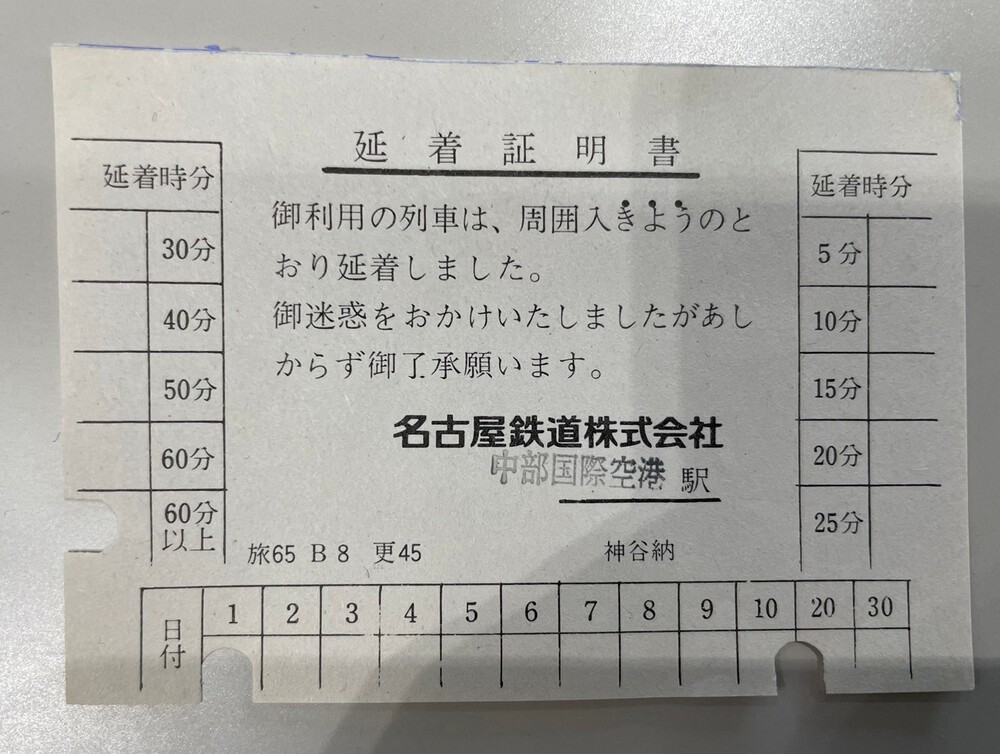 延着証明書
延着時分
30分
40分
50分
60分
60分
以上
御利用の列車は、周囲入きようのと
おり延着しました。
御迷惑をおかけいたしましたがあし
からず御了承願います。
名古屋鉄道株式会社
中部国際空港 駅
延着時分
5分
10分
15分
20分
25分
旅65 B8 更45 神谷納
日付 1 2 3 4 5 6 7 8 9 10 20 30